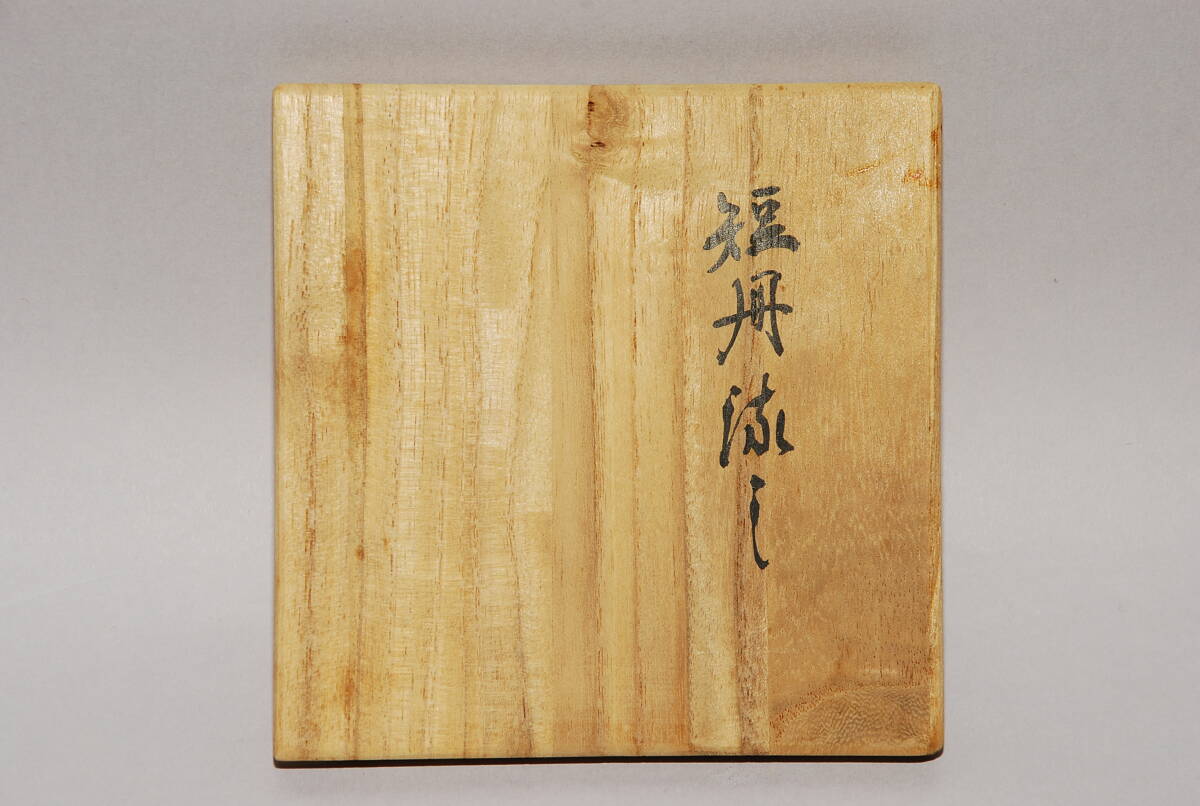 短冊流し